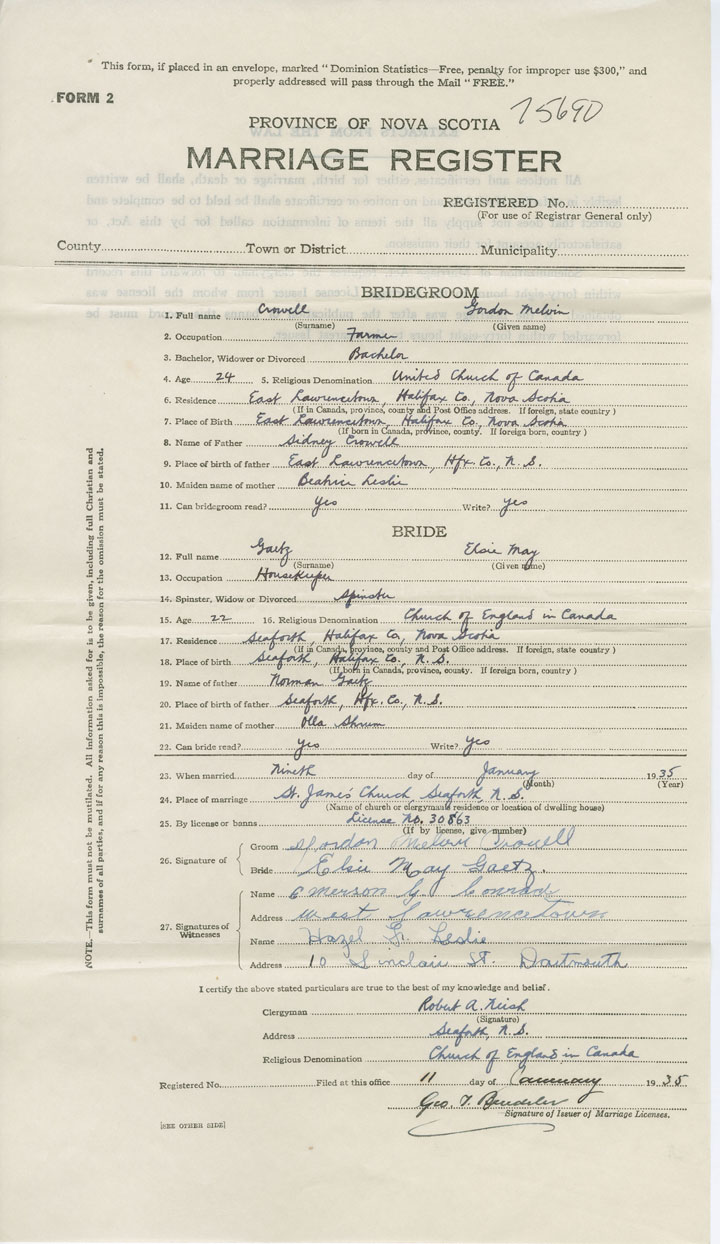 This form, if placed in an envelope, marked "Dominion Statistics—Free, penalty for improper use $300," and
properly addressed will pass through the Mail "FREE."
FORM 2
75690
PROVINCE OF NOVA SCOTIA
MARRIAGE REGISTER
REGISTERED No.
(For use of Registrar General only)
County Town or District Municipality
BRIDEGROOM
1. Full name Crowell Gordon Melvin
(Surname) (Given name)
2. Occupation Farmer
3. Bachelor, Widower or Divorced Bachelor
4. Age 24 5. Religious Denomination United Church of Canada
6. Residence East Lawrencetown, Halifax Co., Nova Scotia
(If in Canada, province, county and Post Office address. If foreign, state country)
7. Place of Birth East Lawrencetown, Halifax Co. Nova Scotia
(If born in Canada, province, county. If foreign born, country)
8. Name of Father Sidney Crowell
9. Place of birth of father East Lawrencetown, Hfx. Co., N. S.
10. Maiden name of mother Beatrice Leslie
11. Can bridegroom read? Yes Write? Yes
BRIDE
12. Full name Gaetz Elsie May
(Surname) (Given name)
13. Occupation Housekeeper
14. Spinster, Widow or Divorced Spinster
15. Age 22 16. Religious Denomination Church of England in Canada
17. Residence Seaforth, Halifax Co, Nova Scotia
(If in Canada, province, county and Post Office address. If foreign, state country)
18. Place of birth Seaforth, Halifax Co. N. S.
(If born in Canada, province, county. If foreign born, country)
19. Name of father Norman Gaetz
20. Place of birth of father Seaforth, Hfx. Co., N. S.
21. Maiden name of mother Olla Shrum
22. Can bride read? Yes Write? Yes
23. When married Nineth day of January 1935
(Month) (Year)
24. Place of marriage St. James Church, Seaforth, N. S.
(Name of church or clergyman's residence or location of dwelling house)
25. By license or banns License No. 30863
(If by license, give number)
26. Signature of Groom Gordon Melvin Crowell
Bride Elsie May Gaetz
27. Signatures of Witnesses
Name Emerson G Conrad
Address West Lawrencetown
Name Hazel G. Leslie
Address 10 Sinclair St. Dartmouth
I certify the above stated particulars are true to the best of my knowledge and belief.
Clergyman Robert A. Neish
(Signature)
Address Seaforth, N. S.
Religious Denomination Church of England in Canada
Registered No. Filed at this office 11 day of January 1935
Geo. T.
Signature of Issuer of Marriage Licenses.
[SEE OTHER SIDE]
NOTE.—This form must not be mutilated. All information asked for is to be given, including full Christian and
surnames of all parties, and if for any reason this is impossible, the reason for the omission must be stated.